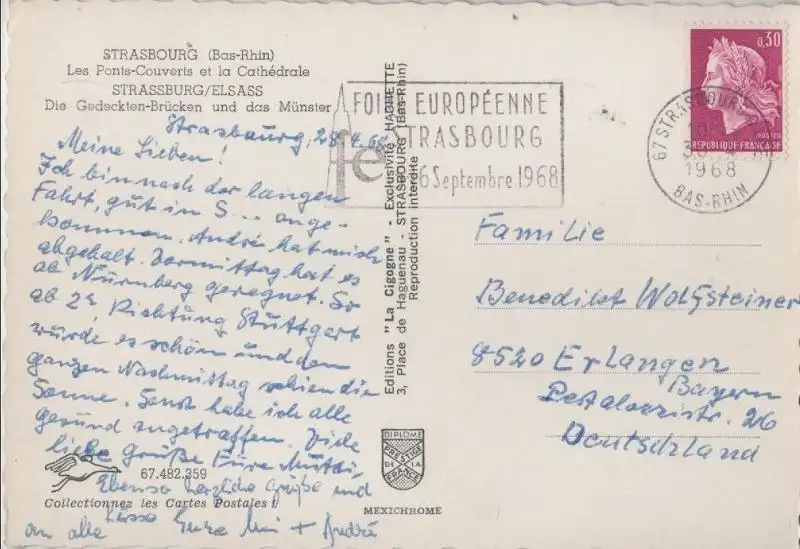 STRASBOURG (Bas-Rhin)
Les Ponts-Couverts et la Cathédrale
STRASSBURG/ELSASS
Die Gedeckten-Brücken und das Münster
Strasbourg, 28.
Meine Lieben!
Ich bin nach der langen
Fahrt, gut in S... ange-
kommen. André hat mich
abgehalt. Vormittag hat es
ab Nürnberg geregnet. So
ab 2h Richtung Stuttgart
wurde es schön und den
ganzen Nachmittag schien die
Sonne. Sonst habe ich alle
gesund angetroffen. Viele
liebe Grüße Eure Mutti.
Ebenso herzliche Grüße und
Küsse Eure + André
an alle
67.482.359
Collectionnez les Cartes Postales !
Editions "La Cigogne" - Exclusivité HACHETTE
3, Place de Haguenau - STRASBOURG (Bas-Rhin)
Reproduction interdite
DIPLOME
PRESTIGE
DE LA
FRANCE
MEXICHROME
FOIRE EUROPÉENNE
STRASBOURG
fe 6 Septembre 1968
67 STRASBOURG
1968
BAS-RHIN
0,30
POSTES
REPUBLIQUE FRANÇAISE
Familie
Benedikt Wolfsteiner
8520 Erlangen
Bayern
Pestalozzistr. 26
Deutschland